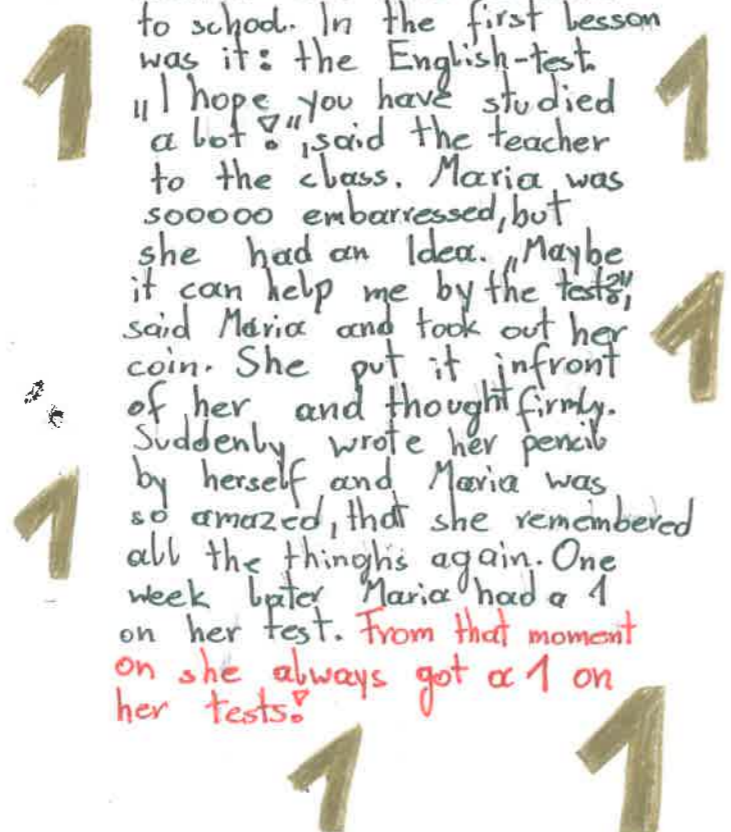 to school. In the first lesson
1
1
was it: the English-test.
„I hope you have studied
a lot!“, said the teacher
to the class. Maria was
sooooo embarressed, but
she had an Idea. „Maybe
it can help me by the test?“,
said Maria and took out her
1
coin. She put it infront
of her and thought firmly.
Suddenly wrote her pencil
by herself and Maria was
1
so amazed, that she remembered
all the thinghs again. One
week later Maria had a 1
on her test. From that moment
on she always got a 1 on
her tests!
1
1